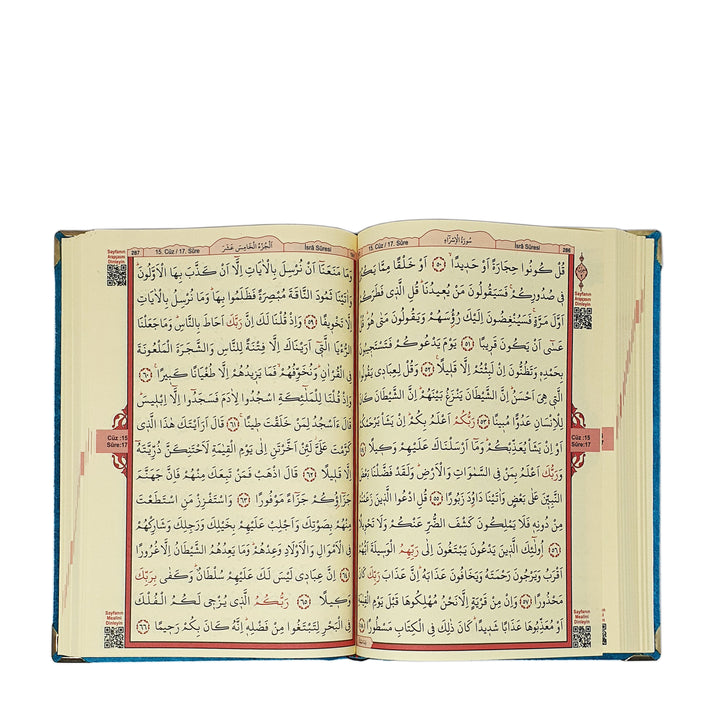 286
İsrâ Sûresi
سُورَةُ الْاِسْرَاءِ
15. Cüz / 17. Sûre
قُلْ كُونُوا حِجَارَةً اَوْ حَدِيدًاۙ ﴿٥٠﴾ اَوْ خَلْقًا مِمَّا
فِي صُدُورِكُمْۚ فَسَيَقُولُونَ مَنْ يُعِيدُنَاۜ قُلِ الَّذِي فَطَرَكُمْ
اَوَّلَ مَرَّةٍۚ فَسَيُنْغِضُونَ اِلَيْكَ رُؤُسَهُمْ وَيَقُولُونَ مَتٰى هُوَۜ
عَسٰٓى اَنْ يَكُونَ قَرِيبًا ﴿٥١﴾ يَوْمَ يَدْعُوكُمْ
بِحَمْدِهِ وَتَظُنُّونَ اِنْ لَبِثْتُمْ اِلَّا قَلِيلًا ﴿٥٢﴾ وَقُلْ لِعِبَادِي
هِيَ اَحْسَنُۜ اِنَّ الشَّيْطَانَ يَنْزَغُ بَيْنَهُمْۜ اِنَّ الشَّيْطَانَ
لِلْاِنْسَانِ عَدُوًّا مُبِينًا ﴿٥٣﴾ رَبُّكُمْ اَعْلَمُ بِكُمْۜ اِنْ يَشَأْ
اَوْ اِنْ يَشَأْ يُعَذِّبْكُمْۜ وَمَٓا اَرْسَلْنَاكَ عَلَيْهِمْ وَكِيلًا
وَرَبُّكَ اَعْلَمُ بِمَنْ فِي السَّمٰوَاتِ وَالْاَرْضِۜ وَلَقَدْ فَضَّلْنَا
النَّبِيّ۪نَ عَلٰى بَعْضٍ وَاٰتَيْنَا دَاوُدَ زَبُورًا ﴿٥٥﴾ قُلِ ادْعُوا الَّذِينَ
مِنْ دُونِهِ فَلَا يَمْلِكُونَ كَشْفَ الضُّرِّ عَنْكُمْ وَلَا تَحْوِيلًا
﴿٥٦﴾ اُو۬لٰٓئِكَ الَّذِينَ يَدْعُونَ يَبْتَغُونَ اِلٰى رَبِّهِمُ الْوَسِيلَةَ اَيُّهُمْ
اَقْرَبُ وَيَرْجُونَ رَحْمَتَهُ وَيَخَافُونَ عَذَابَهُۜ اِنَّ عَذَابَ رَبِّكَ كَانَ
مَحْذُورًا ﴿٥٧﴾ وَاِنْ مِنْ قَرْيَةٍ اِلَّا نَحْنُ مُهْلِكُوهَا قَبْلَ يَوْمِ الْقِيٰمَةِ
اَوْ مُعَذِّبُوهَا عَذَابًا شَدِيدًاۜ كَانَ ذٰلِكَ فِي الْكِتَابِ مَسْطُورًا ﴿٥٨﴾
Sayfanın
Arapçasını
Dinleyin
Cüz :15
Sûre:17
Sayfanın
Mealini
Dinleyin
287
15. Cüz / 17. Sûre
اَلْجُزْءُ الْخَامِسَ عَشَرَ
İsrâ Sûresi
وَمَا مَنَعَنَٓا اَنْ نُرْسِلَ بِالْاٰيَاتِ اِلَّٓا اَنْ كَذَّبَ بِهَا الْاَوَّلُونَۜ
وَاٰتَيْنَا ثَمُودَ النَّاقَةَ مُبْصِرَةً فَظَلَمُوا بِهَاۜ وَمَا نُرْسِلُ بِالْاٰيَاتِ
اِلَّا تَخْوِيفًا ﴿٥٩﴾ وَاِذْ قُلْنَا لَكَ اِنَّ رَبَّكَ اَحَاطَ بِالنَّاسِۜ وَمَا جَعَلْنَا
الرُّءْيَا الَّتِٓي اَرَيْنَاكَ اِلَّا فِتْنَةً لِلنَّاسِ وَالشَّجَرَةَ الْمَلْعُونَةَ
فِي الْقُرْاٰنِۜ وَنُخَوِّفُهُمْۙ فَمَا يَزِيدُهُمْ اِلَّا طُغْيَانًا كَبِيرًا ﴿٦٠﴾
وَاِذْ قُلْنَا لِلْمَلٰٓئِكَةِ اسْجُدُوا لِاٰدَمَ فَسَجَدُٓوا اِلَّٓا اِبْلِيسَۜ
قَالَ ءَاَسْجُدُ لِمَنْ خَلَقْتَ طِينًا ﴿٦١﴾ قَالَ اَرَاَيْتَكَ هٰذَا الَّذِي
كَرَّمْتَ عَلَيَّۘ لَئِنْ اَخَّرْتَنِ اِلٰى يَوْمِ الْقِيٰمَةِ لَاَحْتَنِكَنَّ ذُرِّيَّتَهُٓ
اِلَّا قَلِيلًا ﴿٦٢﴾ قَالَ اذْهَبْ فَمَنْ تَبِعَكَ مِنْهُمْ فَاِنَّ جَهَنَّمَ
جَزَٓاؤُكُمْ جَزَٓاءً مَوْفُورًا ﴿٦٣﴾ وَاسْتَفْزِزْ مَنِ اسْتَطَعْتَ
مِنْهُمْ بِصَوْتِكَ وَاَجْلِبْ عَلَيْهِمْ بِخَيْلِكَ وَرَجِلِكَ وَشَارِكْهُمْ
فِي الْاَمْوَالِ وَالْاَوْلَادِ وَعِدْهُمْۜ وَمَا يَعِدُهُمُ الشَّيْطَانُ اِلَّا غُرُورًا
﴿٦٤﴾ اِنَّ عِبَادِي لَيْسَ لَكَ عَلَيْهِمْ سُلْطَانٌۜ وَكَفٰى بِرَبِّكَ
وَكِيلًا ﴿٦٥﴾ رَبُّكُمُ الَّذِي يُزْجِي لَكُمُ الْفُلْكَ
فِي الْبَحْرِ لِتَبْتَغُوا مِنْ فَضْلِهِۜ اِنَّهُ كَانَ بِكُمْ رَحِيمًا ﴿٦٦﴾
Sayfanın
Arapçasını
Dinleyin
Cüz :15
Sûre:17
Sayfanın
Mealini
Dinleyin